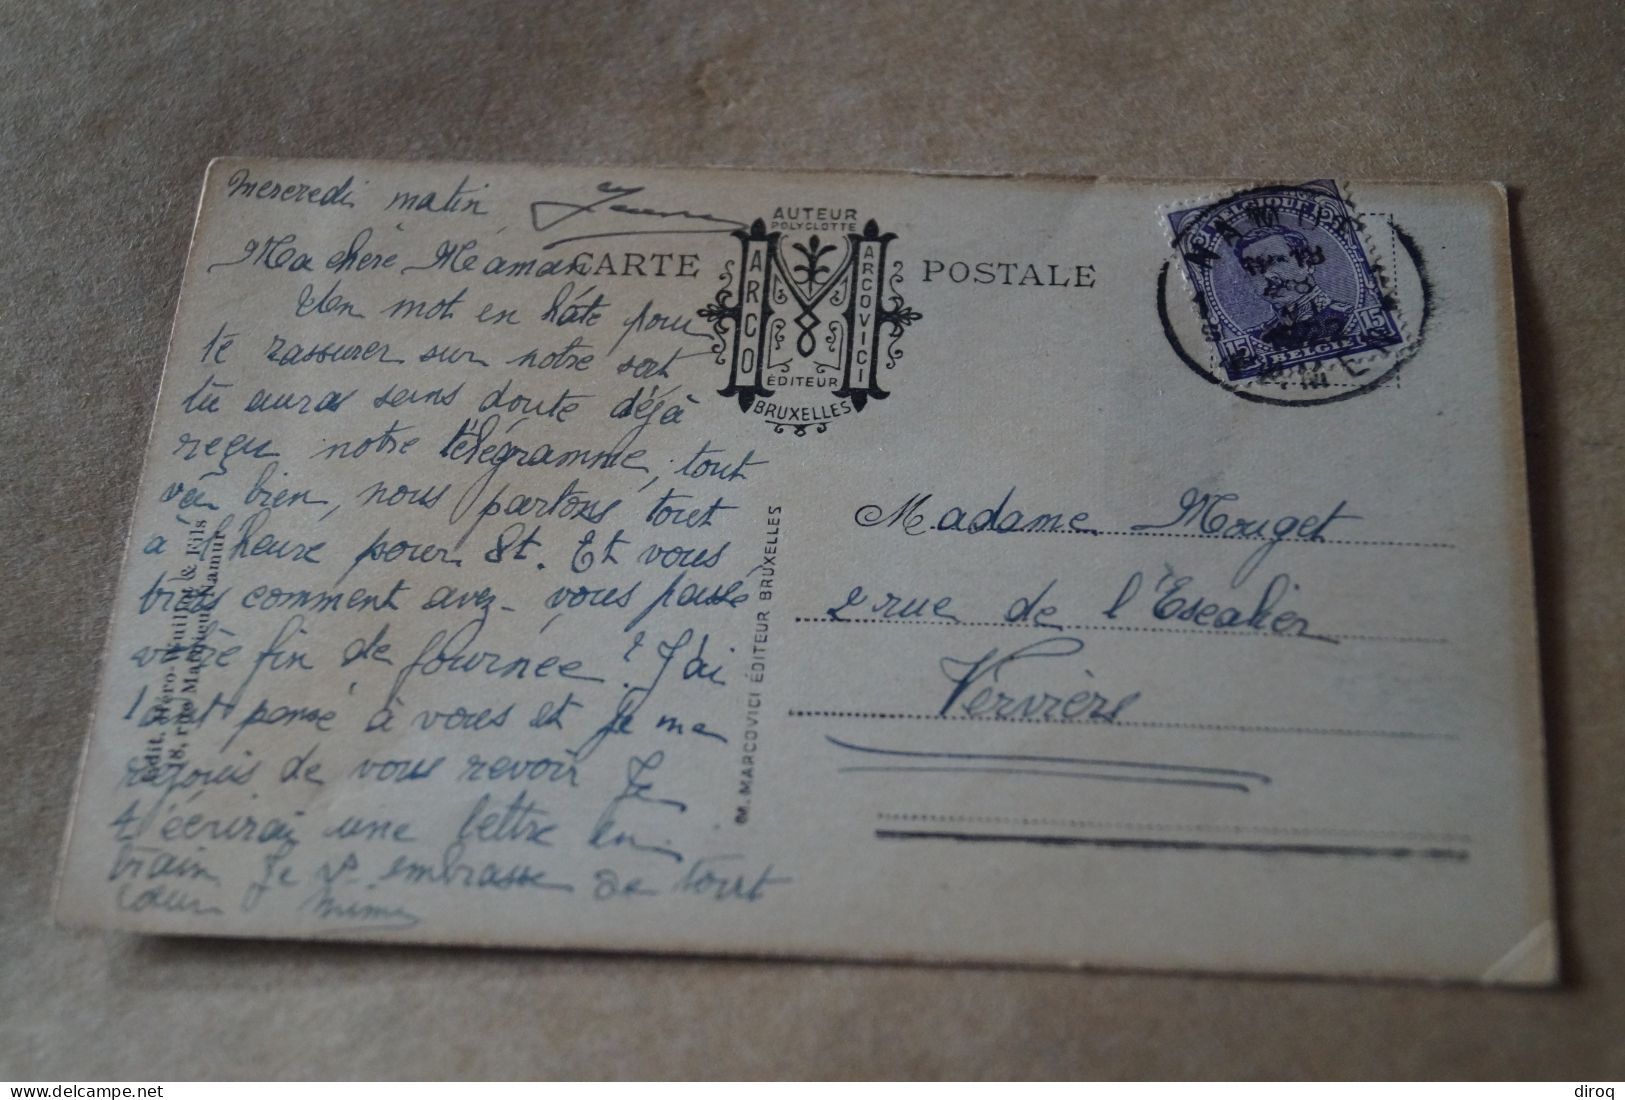 Mercredi matin
Ma chère Maman
Un mot en hâte pour
te rassurer sur notre sort
tu auras sans doute déjà
reçu notre télégramme, tout
va bien, nous partons tout
à l'heure pour St. Et vous
comment avez-vous passé
votre fin de journée? J'ai
tant pensé à vous et je me
rejouis de vous revoir Je
t'écrirai une lettre en
train Je embrasse de tout
cœur Mimi
CARTE POSTALE
AUTEUR
POLYGLOTTE
ARCO
ARCOVICI
ÉDITEUR
BRUXELLES
M. MARCOVICI ÉDITEUR BRUXELLES
Edit. Héro-Wuillot & Fils
18, rue Mathieu, Namur
BELGIQUE
15 15
BELGIË
NAMUR
NAMEN
Madame Mouget
2 rue de l'Escalier
Verviers
diroq